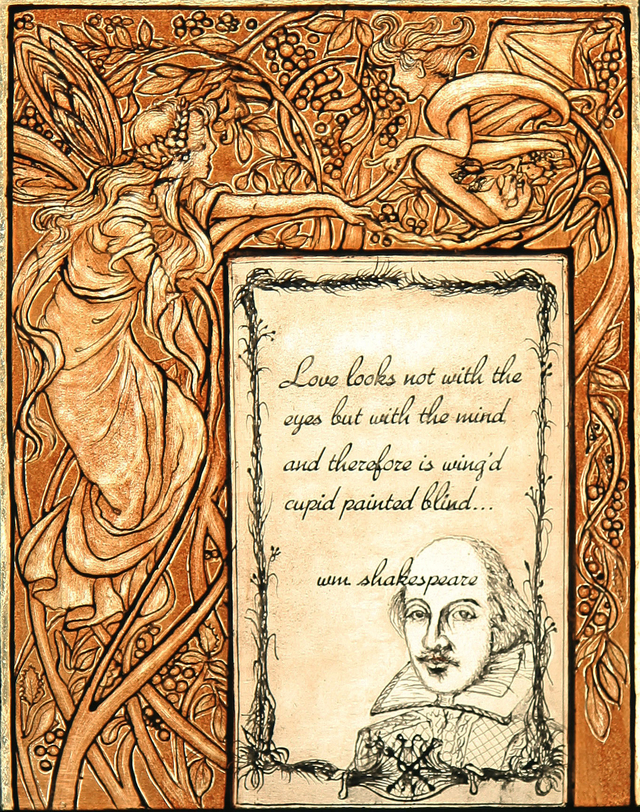 Love looks not with the
eyes but with the mind
and therefore is wing'd
cupid painted blind...
wm shakespeare